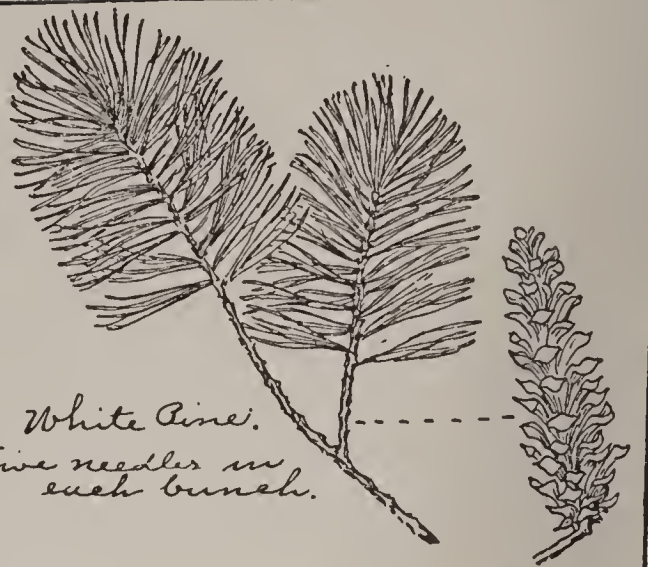 White Pine.
ive needles in
each bunch.